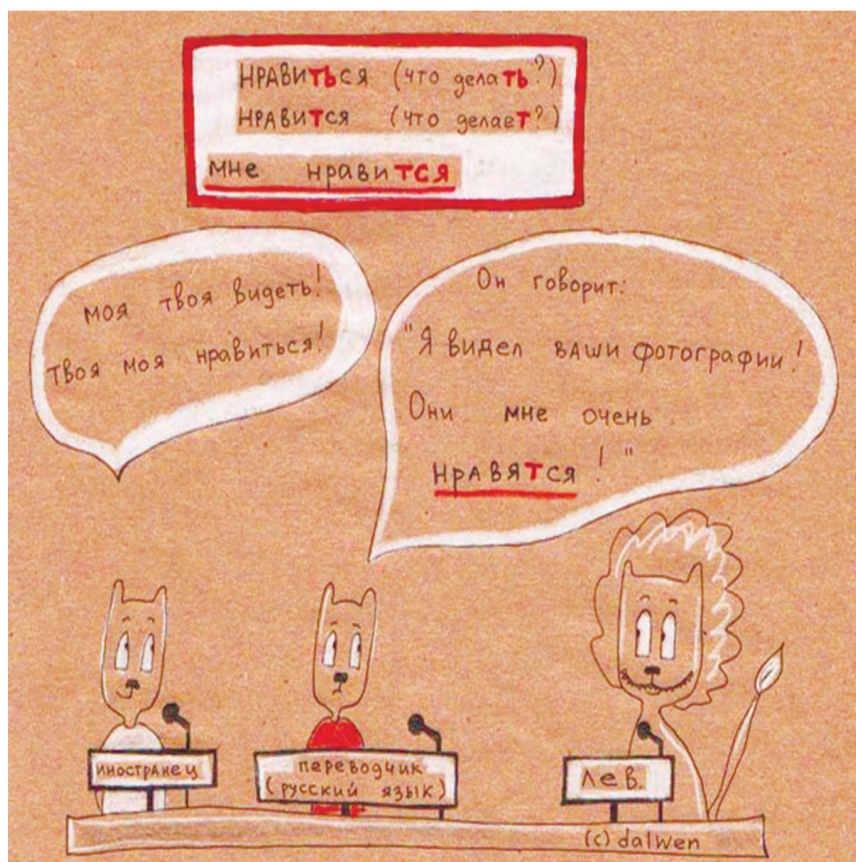 НРАВИТЬСЯ (что делать?)
НРАВИТСЯ (что делает?)
мне нравится
моя твоя видеть!
твоя моя нравиться!
Он говорит:
"Я видел ваши фотографии!
Они мне очень
нравятся!"
иностранец
переводчик
(русский язык)
лев.
(c) dalwen